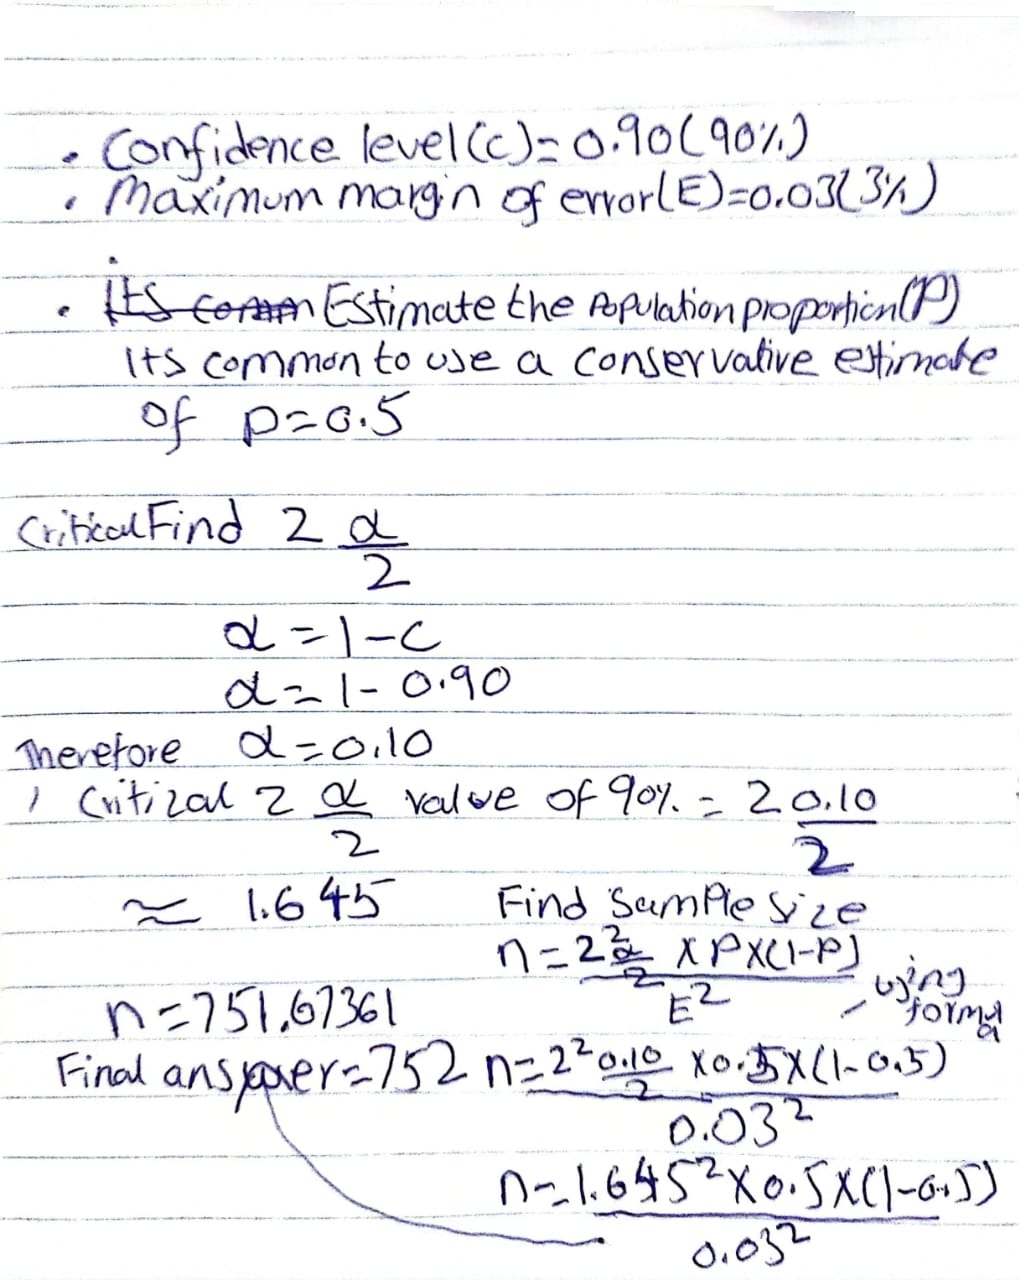 • Confidence level(c)=0.90(90%)
• Maximum margin of error(E)=0.03(3%)
• Its comm Estimate the Population proportion(P)
Its common to use a conservative estimate
of p=0.5
Critical Find 2 α/2
α=1-c
α=1-0.90
Therefore α=0.10
, Critizal 2 α/2 value of 90% = 2 0.10/2
≈ 1.645 Find Sample Size
n=2² α/2 x P x(1-P)/E² - using formula
n=751.67361
Final answer=752 n=2² 0.10/2 x0.5x(1-0.5)/0.03²
n=1.645²x0.5x(1-0.5)/0.03²